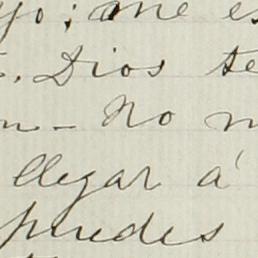 yo; me es
. Dios te
n - No m
llegar á
puedes